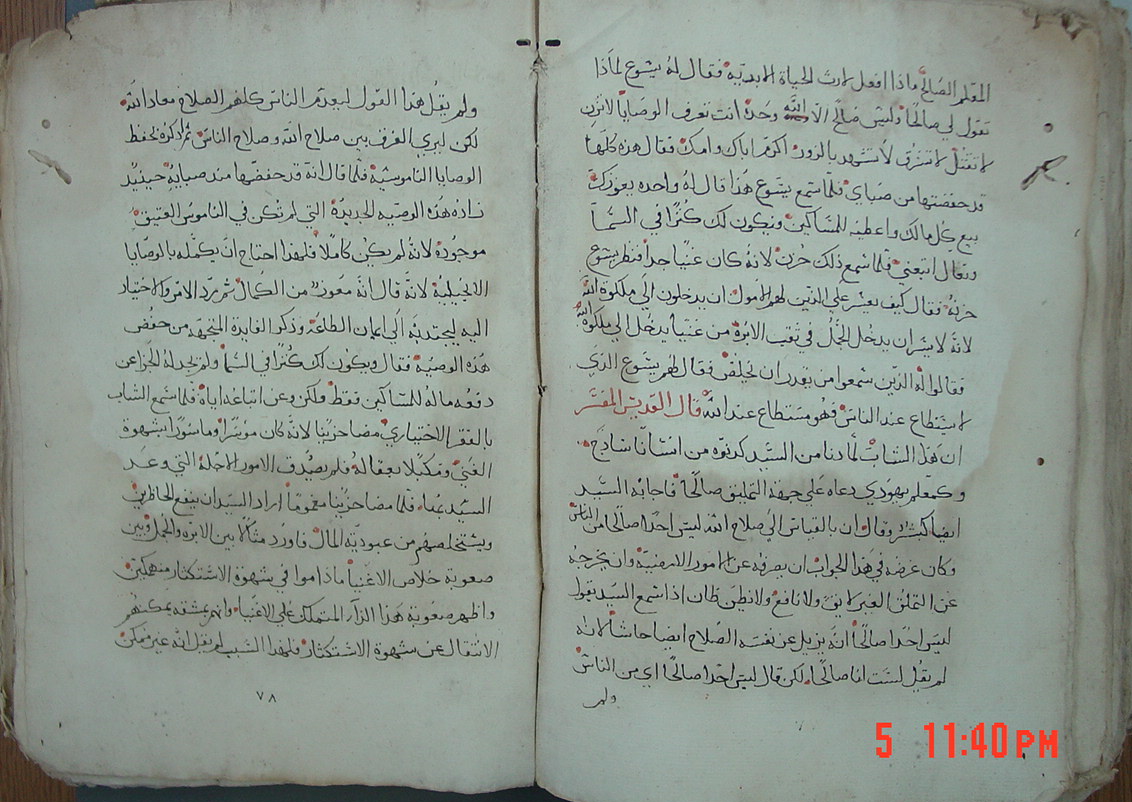 المعلم الصالح ماذا افعل لارث الحياة الابديه فقال له يشوع لماذا
تقول لي صالحًا وليس صالح الا الله وحده انت تعرف الوصايا لاتزن
لاتقتل لاتسرق لاتشهد بالزور اكرم اباك وامك فقال هذه كلها
قد حفضتها من صباي فلما سمع يشوع هذا قال له واحده يعوزك
بيع كل مالك واعطيه للمساكين ويكون لك كنزًا في السما
وتعال اتبعني فلما سمع ذلك حزن لانه كان غنيًا جدا فنظر يشوع
حزنه فقال كيف يعسر علي الذين لهم الاموال ان يدخلون الي ملكوة الله
لانه لايسر ان يدخل الجمل في ثقب الابره من غنيًا يدخل الي ملكوة الله
فقالوا له الذين سمعوا من يقدر ان يخلص فقال لهم يشوع الذي
لا يستطاع عند الناس فهو مستطاع عند الله قال القديس المفسر
ان هذا الشاب لما دنا من السيد كدنوه من انسانًا ساذج
وكمعلم يهودي دعاه علي جهة التمليق صالحًا فاجابه السيد
ايضا كبشر وقال ان بالقياس الي صلاح الله ليس احدًا صالحًا من الناس
وكان غرضه في هذا الجواب ان يصرفه عن الامور الارضية وان يخرجه
عن التملق الغير لايق ولا نافع ولا تظن ظان اذا سمع السيد يقول
ليس احدًا صالحًا انه يزيل عن نفسه الصلاح ايضا حاشا لانه
لم يقل لست انا صالحًا لكن قال ليس احدًا صالحًا اي من الناس
ولم
ولم يقل هذا القول ليعدم الناس كلهم الصلاح معاد الله
لكن ليري الفرق بين صلاح الله وصلاح الناس ثم اذكره بحفظ
الوصايا الناموسيه فلما قال انه قد حفضها مند صبايه حينيد
زاده هذه الوصيه الجديدة التي لم تكن في الناموس العتيق
موجوده لانه لم يكن كاملًا فلهذا احتاج ان يكمله بالوصايا
الانجيلية لانه قال انه معوز من الكمال ثم رد الامر والاختيار
اليه ليجتذبه الي ايمان الطاعه وذكر الفايدة المتجهه من حفض
هذه الوصيه فقال ويكون لك كنزًا في السما ولم يجد له الجزا عن
دفعه ماله للمساكين فقط ولكن وعن اتباعه اياه فلما سمع الشاب
بالفقر الاختياري مضا حزينا لانه كان موسرًا وماسورًا بشهوة
الغني ومكبلا بعقاله فلم يصدق الامور الاجله التي وعد
السيد بها فلما مضا حزينا مغمومًا اراد السيد ان ينفع الحاظرين
ويستخلصهم من عبودية المال فاورد مثالًا بين الابره والجمل وبين
صعوبة خلاص الاغنيا ماداموا في شهوة الاستكثار منهمكين
واظهر صعوبة هذا الزار المتملك علي الاغنيا وانهم بمشقه يمكنهم
الانتقال عن شهوة الاستكثار فلهذا السبب لم يقل انه غير ممكن
٧٨
5 11:40 PM